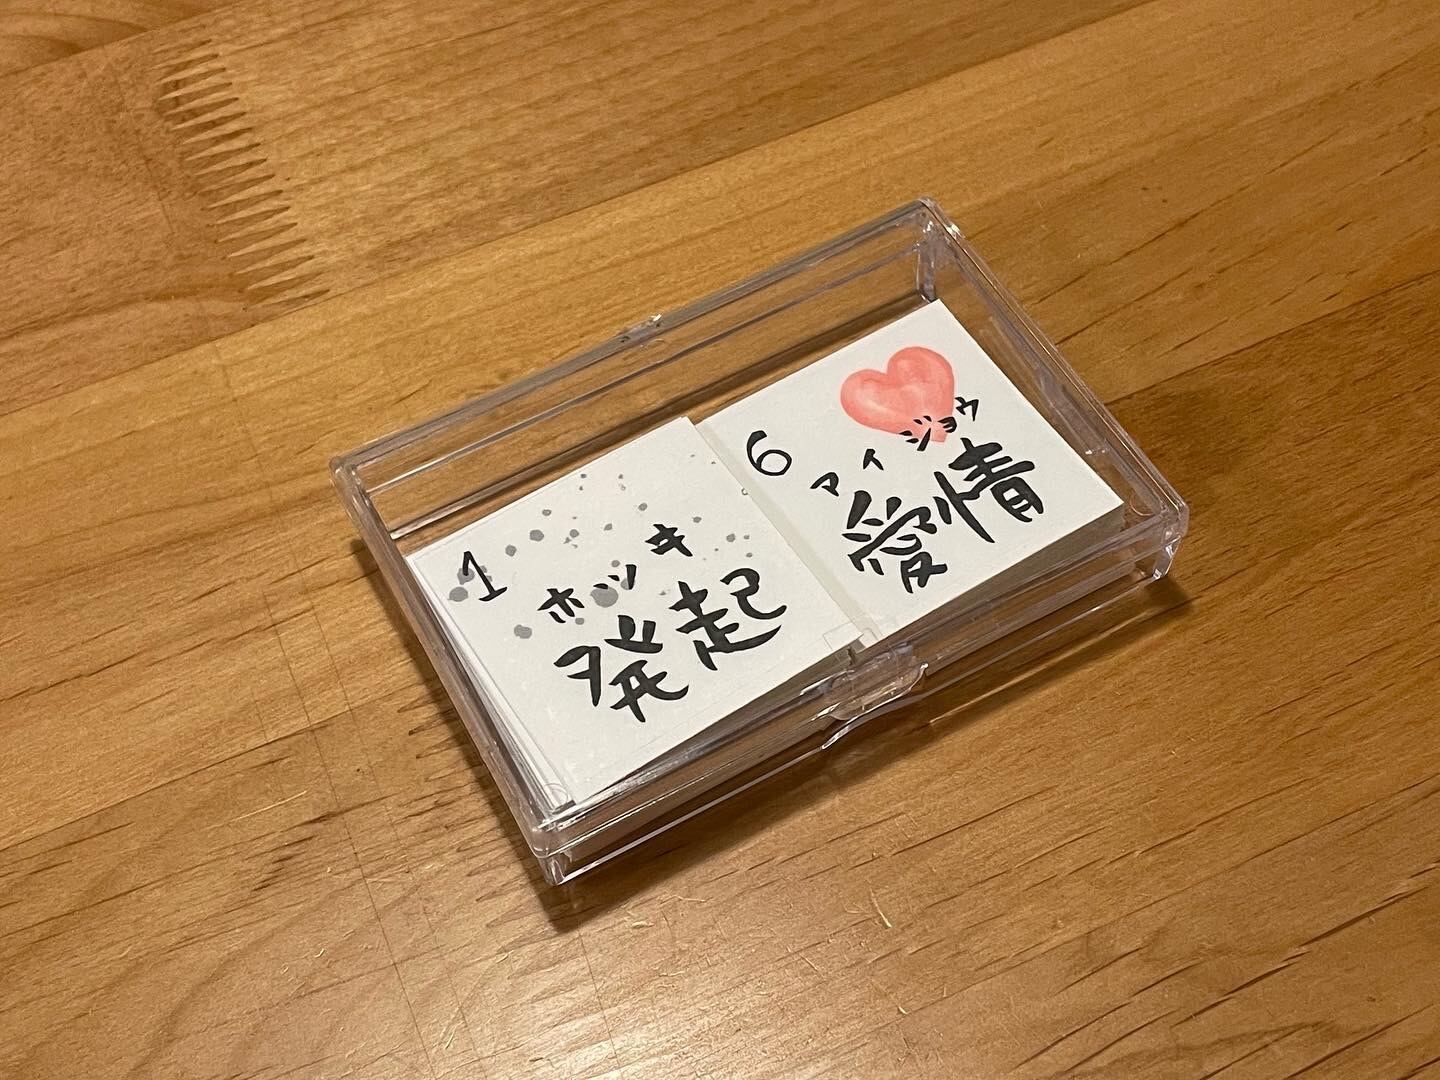 1
ホッキ
発起
6
アイジョウ
愛情